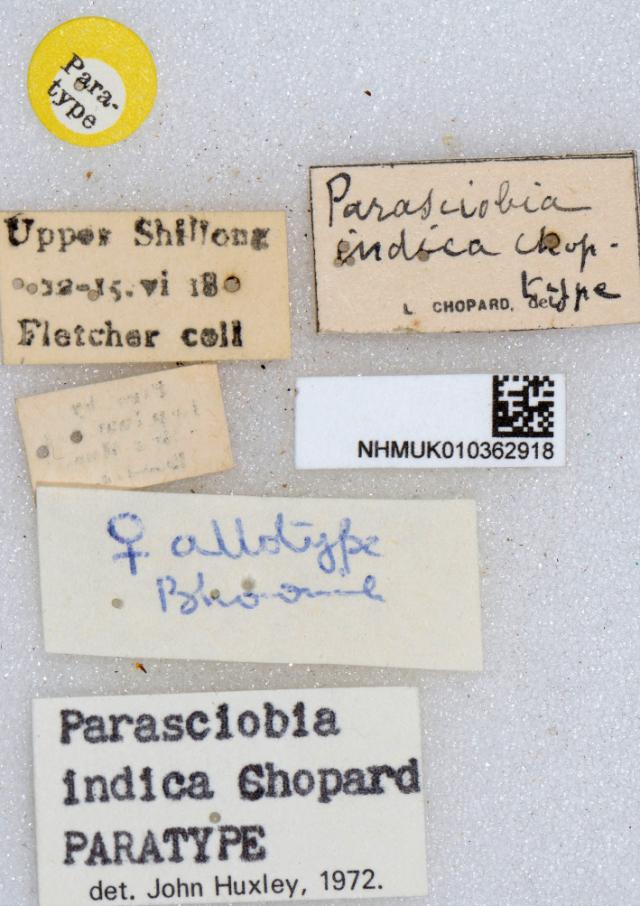 Para-
type
Upper Shillong
12-15.vi 18
Fletcher coll
Parasciobia
indica Chop-
type
L. CHOPARD, det.
NHMUK010362918
♀ allotype
Parasciobia
indica Chopard
PARATYPE
det. John Huxley, 1972.